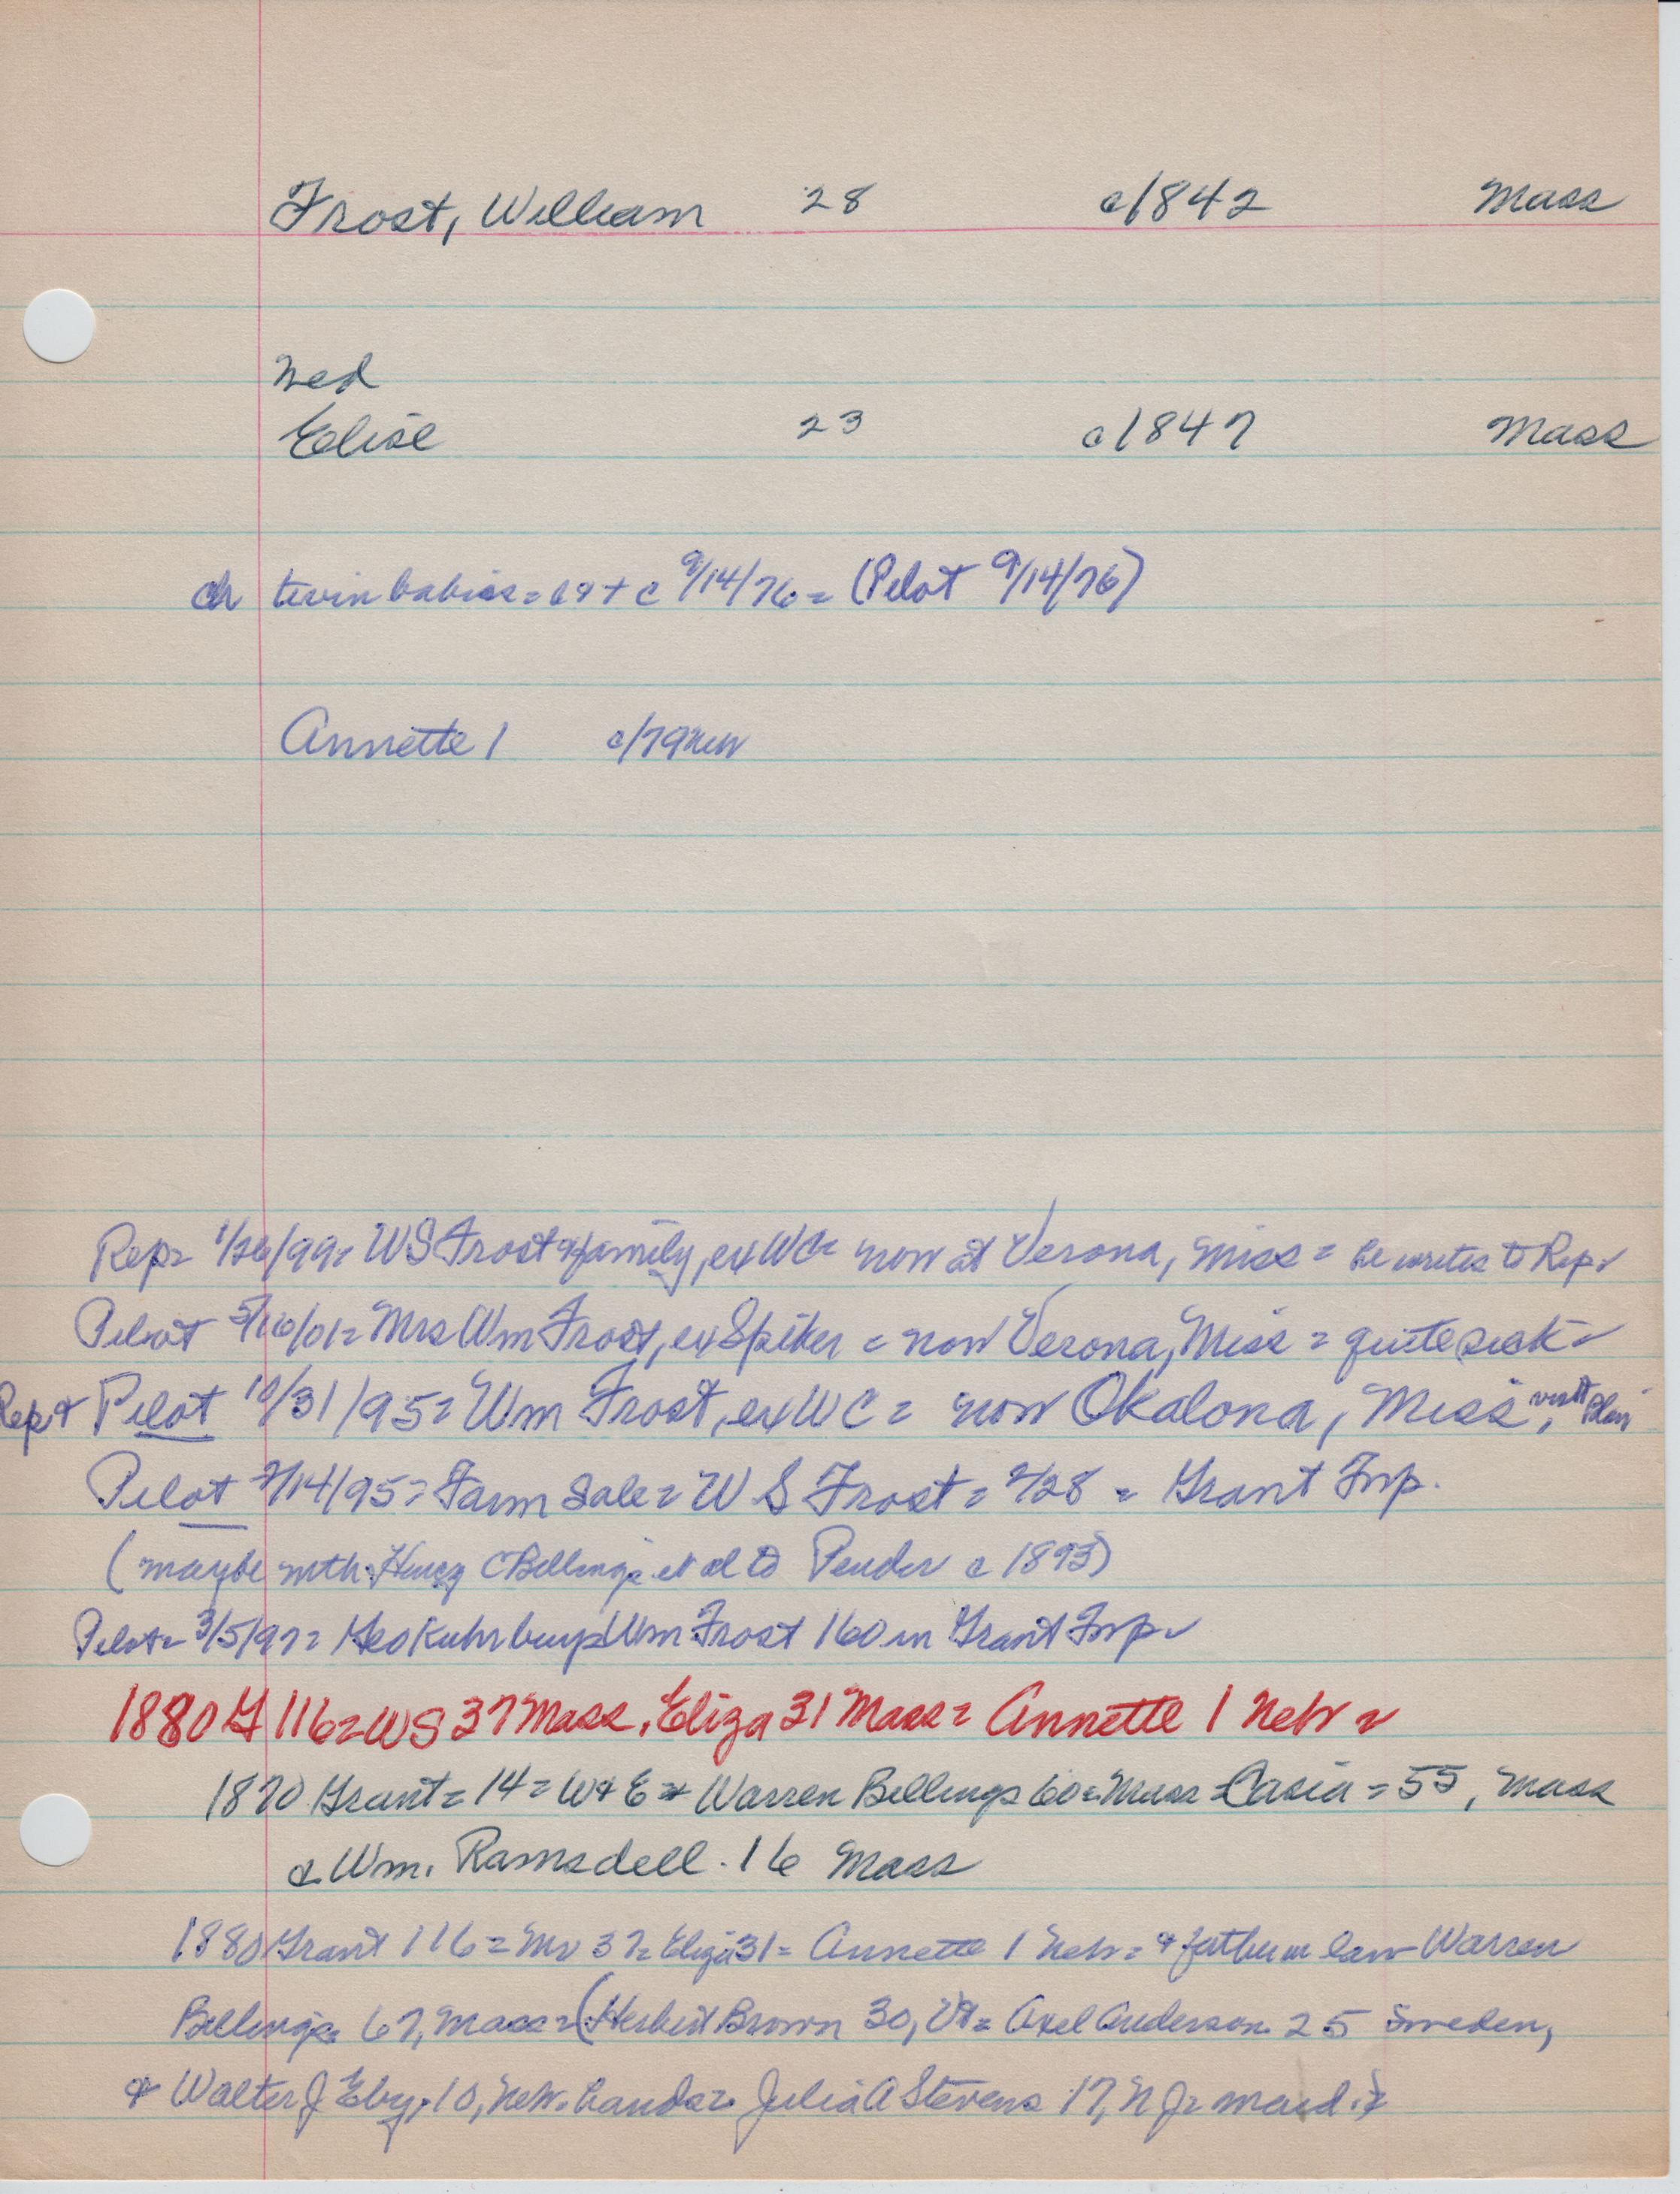 Frost, William 28 c1842 Mass
Ned
Elise 23 c1847 Mass
ch twin babies = + c 9/14/76 = (Pilot 9/14/76)
Annette 1 c/79 Neb
Rep = 1/26/99 = WS Frost & family, ex WC = now at Verona, Miss = he writes to Rep =
Pilot 5/16/01 = Mrs Wm Frost, ex Spiker = now Verona, Miss = quite sick =
Rep & Pilot 10/31/95 = Wm Frost, ex WC = now Okalona, Miss, visit Blair
Pilot 2/14/95 = Farm Sale = W S Frost = 2/28 = Grant Twp.
(maybe with Henry C Billings et al to Pender c 1893)
Pilot = 3/5/97 = Geo Kuhr buys Wm Frost 160 in Grant Twp =
1880 G 116 = WS 37 Mass, Eliza 31 Mass = Annette 1 Neb =
1870 Grant = 14 = W & E = & Warren Billings 60 = Mass = = 55, Mass
& Wm. Ramsdell. 16 Mass
1880 Grant 116 = 37 = Eliza 31 = Annette 1 Neb = & father in law Warren
Billings 67, Mass = (Herbert Brown 30, Vt = Axel Anderson 25 Sweden,
& Walter J Eby, 10, Neb. hands = Julia A Stevens 17, N J = maid.)